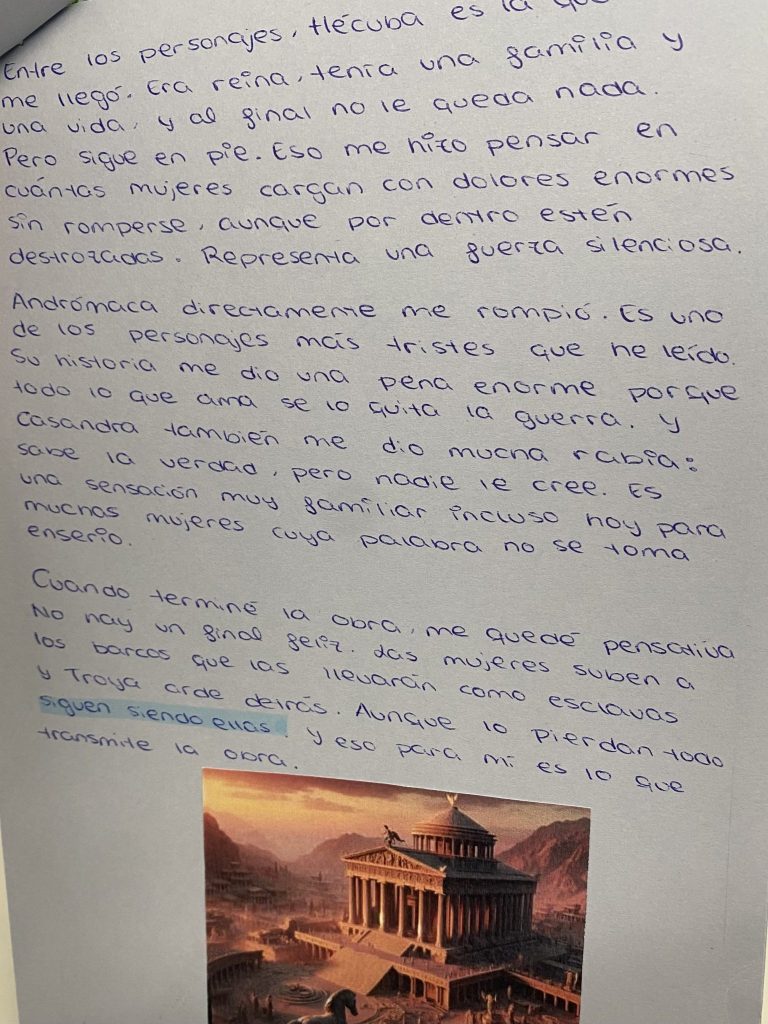 Entre los personajes, Hécuba es la que
me llegó. Era reina, tenía una familia y
una vida, y al final no le queda nada.
Pero sigue en pie. Eso me hizo pensar en
cuántas mujeres cargan con dolores enormes
sin romperse, aunque por dentro estén
destrozadas. Representa una fuerza silenciosa.
Andrómaca directamente me rompió. Es uno
de los personajes más tristes que he leído.
Su historia me dio una pena enorme porque
todo lo que ama se lo quita la guerra. Y
Casandra también me dio mucha rabia:
sabe la verdad, pero nadie le cree. Es
una sensación muy familiar incluso hoy para
muchas mujeres cuya palabra no se toma
enserio.
Cuando terminé la obra, me quedé pensativa
No hay un final feliz. Las mujeres suben a
los barcos que las llevarán como esclavas
y Troya arde detrás. Aunque lo pierdan todo
siguen siendo ellas. Y eso para mi es lo que
transmite la obra.